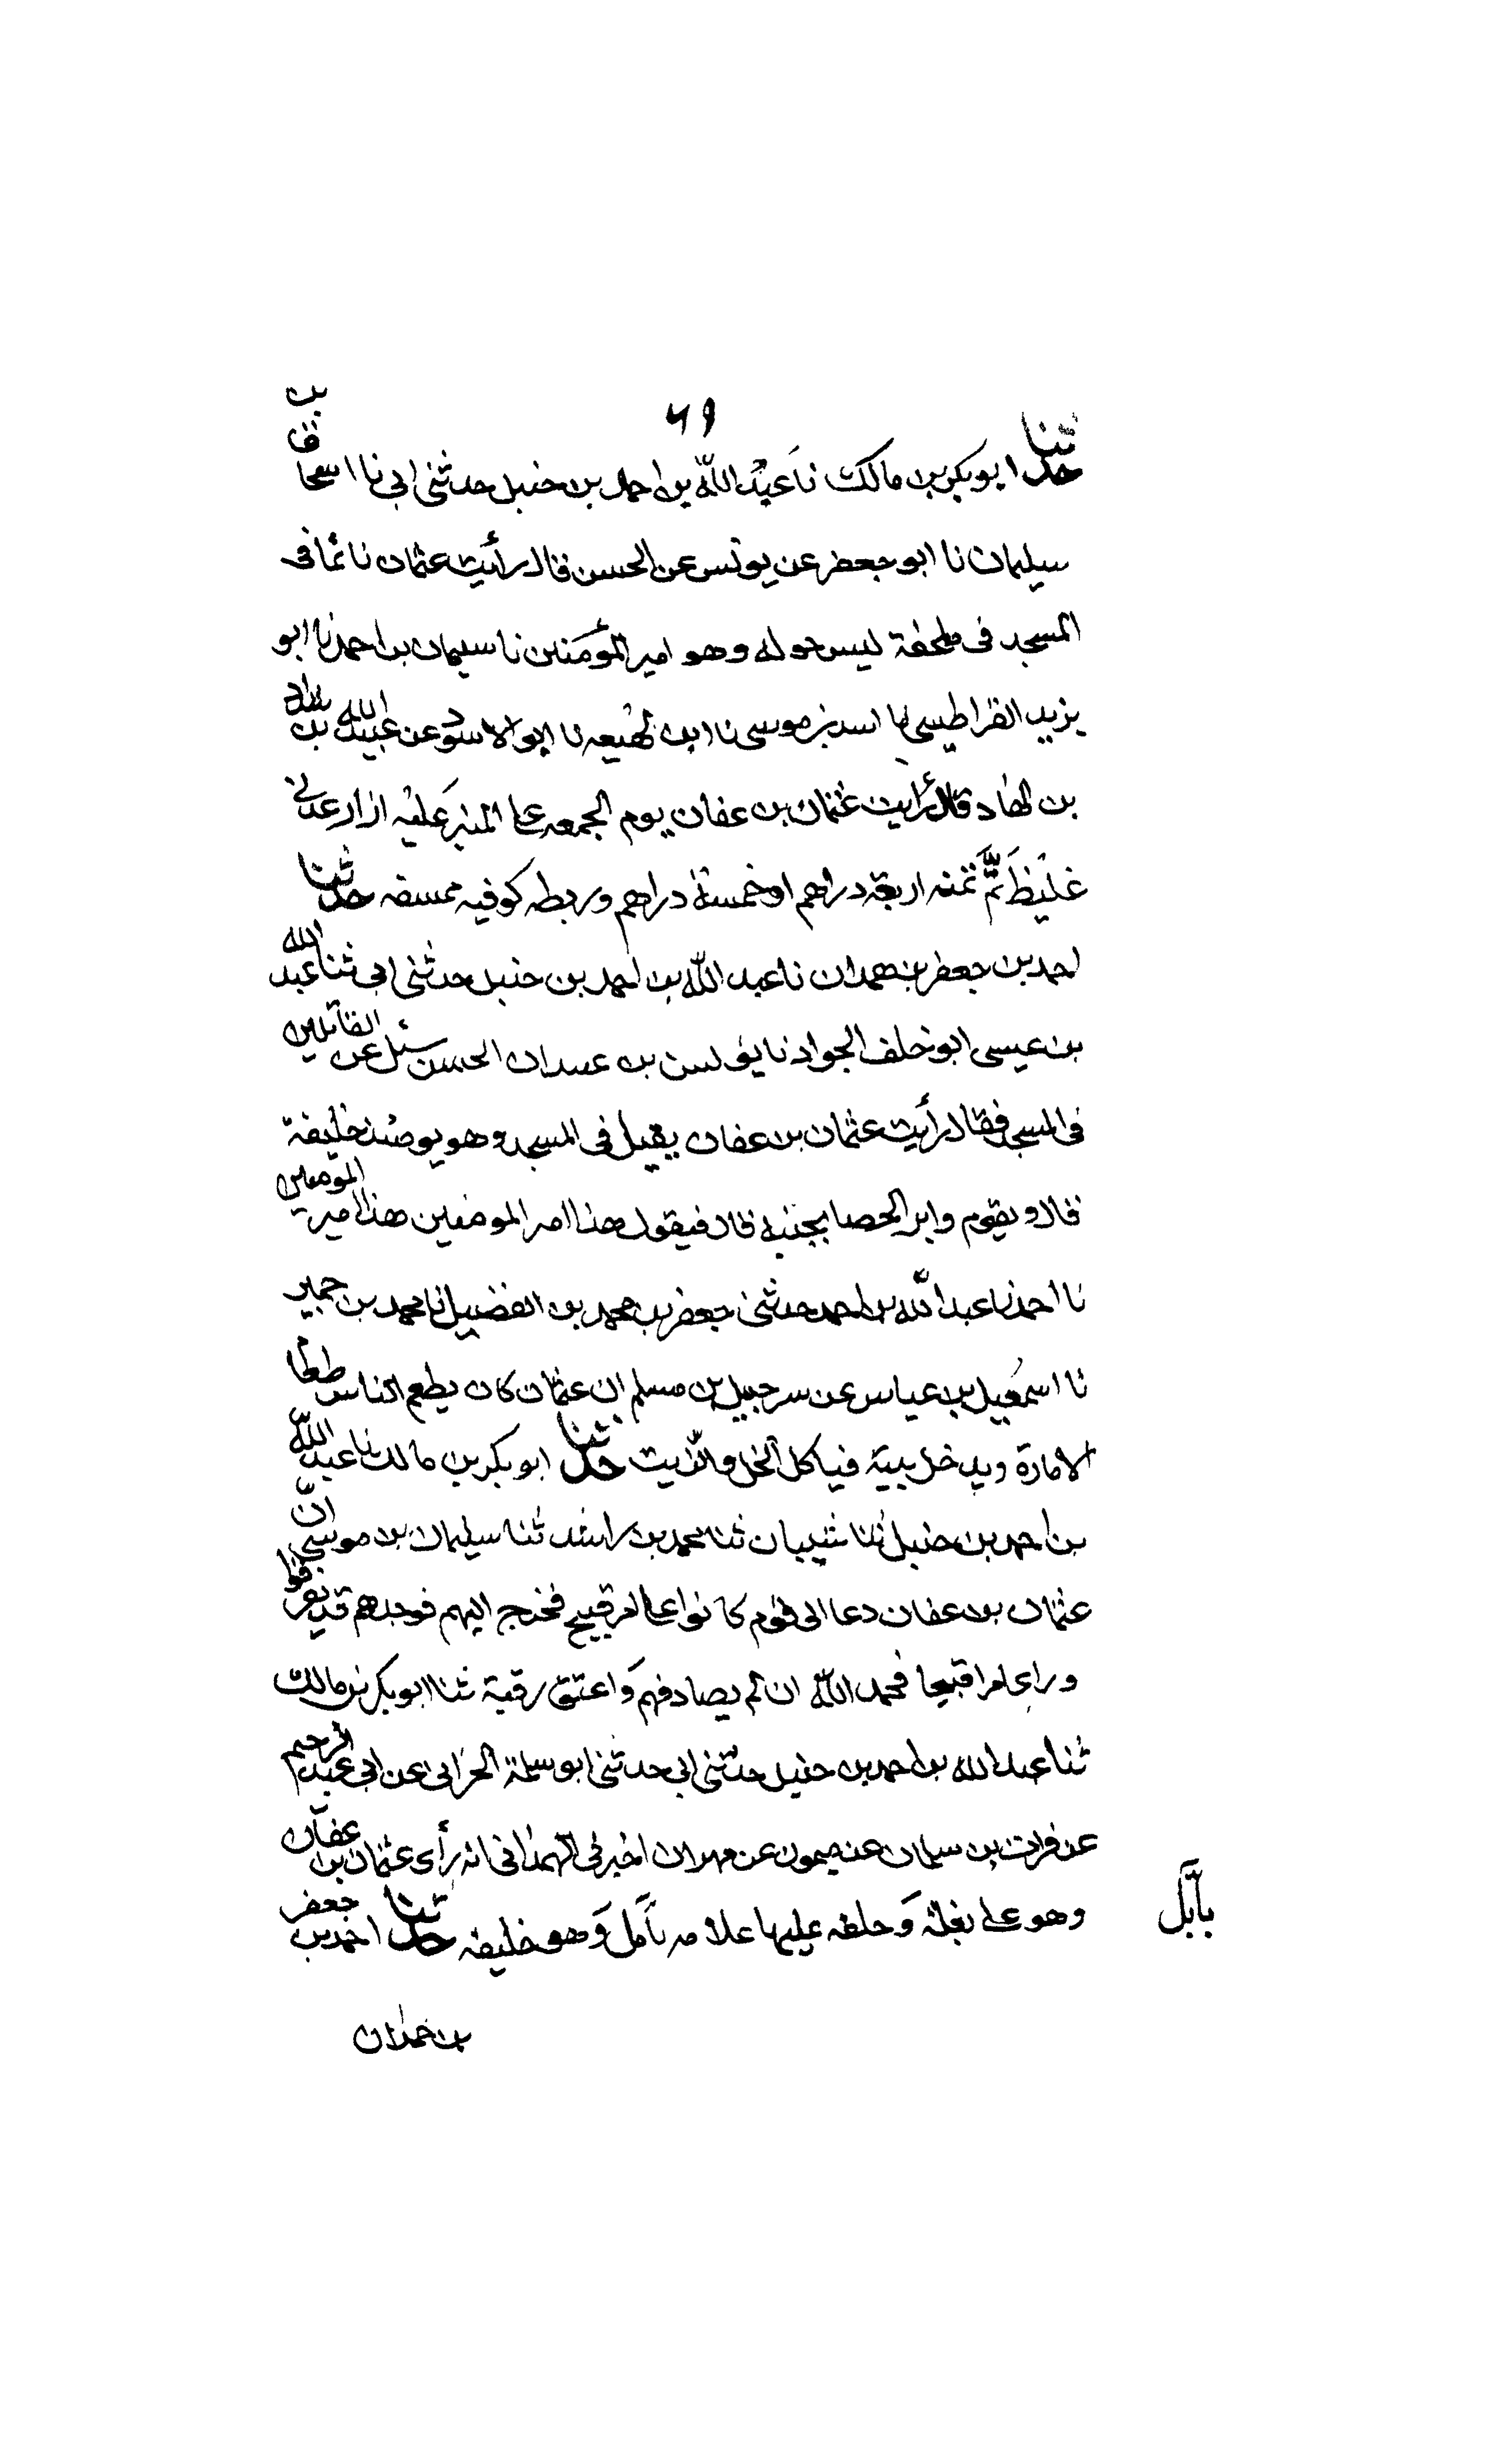 ٦٩
حدثنا ابو بكر بن مالك نا عبد الله بن احمد بن حنبل حدثنى ابى نا اسحاق بن
سيلمان نا ابو جعفر عن يونس عن الحسن قال رأيت عثمان نائما فى
المسجد فى ملحفة ليس حوله وهو امير المؤمنين نا سيمان بن احمد نا ابو
يزيد القراطيسى نا اسد بن موسى نا ابن لهيعه نا ابو الاسود عن عبيد الله بن شداد
بن الهاد قال رأيت عثمان بن عفان يوم الجمعه على المنبر عليه ازار عدنى
غليظ ثمنه اربعة دراهم او خمسة دراهم وريطه كوفيه ممسقه حدثنا
احمد بن جعفر بن همدان نا عبد الله بن احمد بن حنبل حدثنى ابى ثنا عبد الله
بن عيسى ابو خلف الجواد نا يونس بن عبيد ان الحسن سئل عن القائلين
فى المسجد فقال رأيت عثمان بن عفان يقيل فى المسجد وهو يومئذ خليفة
قال ويقوم واثر الحصا بجنبه قال فيقول هذا امير المومنين هذا امير المومنين
نا احمد نا عبد الله بن احمد حدثنى جعفر بن محمد بن الفضيل نا محمد بن حمير
نا اسمعيل بن عياس عن سرجبيل بن مسلم ان عثمان كان يطعم الناس طعام
الامارة ويدخل بيته فياكل الخل والزيت حدثنا ابو بكر بن مالك نا عبد الله
بن احمد بن حنبل ثنا شيبان ثنا محمد بن راشد ثنا سيلمان بن موسى ان
عثمان بن عفان دعا الى قوم كانوا على امر قبيح فخرج اليهم فوجدهم قد تفرقوا
وراى امرا قبيحا فحمد الله ان لم يصادفهم واعتق رقبة ثنا ابو بكر بن مالك
ثنا عبد الله بن احمد بن حنبل حدثنى ابى حدثنى ابو سلمة الحرانى عن ابى عبد الرحيم
عن فرات بن سلمان عن ميمون عن مهران اخبرنى الهمدانى انه رأى عثمان بن عفان
وهو على بغلة وخلفه عليها غلامه نأمل وهو خليفه حدثنا احمد بن جعفر
بن حمدان